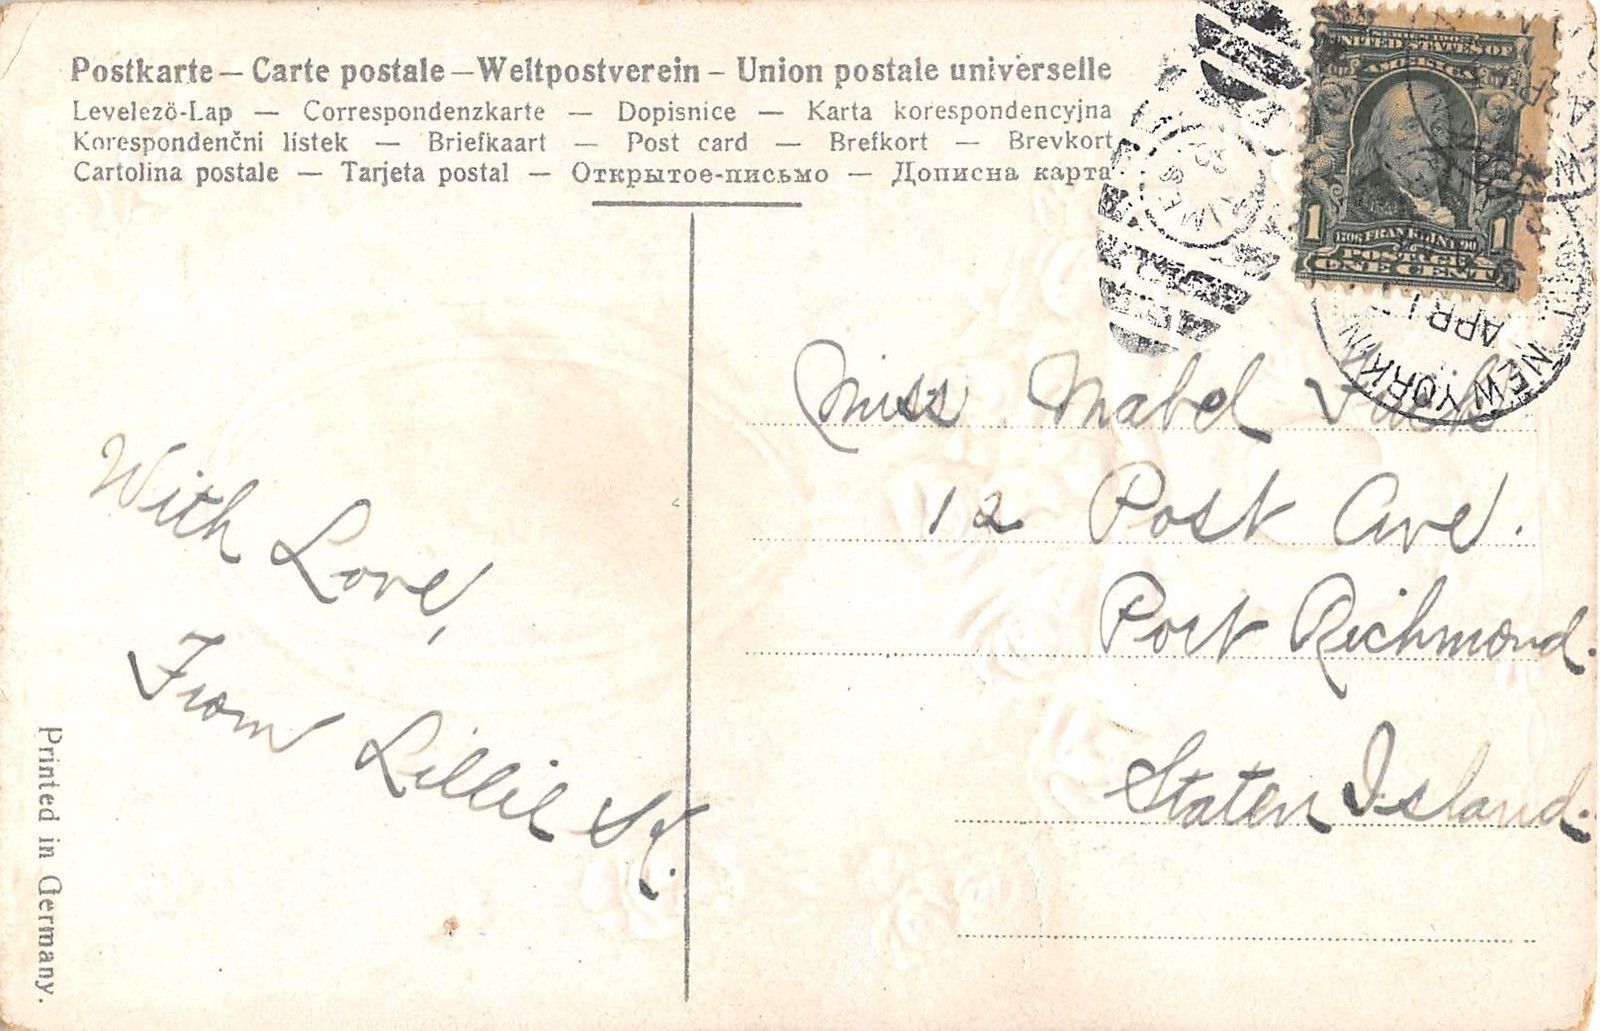 Postkarte – Carte postale – Weltpostverein – Union postale universelle
Levelező-Lap — Correspondenzkarte — Dopisnice — Karta korespondencyjna
Korespondenčni lístek — Briefkaart — Post card — Brefkort — Brevkort
Cartolina postale — Tarjeta postal — Открытое-письмо — Дописна карта
UNITED STATES OF
AMERICA
1 1
POSTAGE
ONE CENT
NEW YORK, N
APR 1
Miss Mabel
12 Post Ave.
Port Richmond.
Staten Island.
With Love,
From Lillie
Printed in Germany.